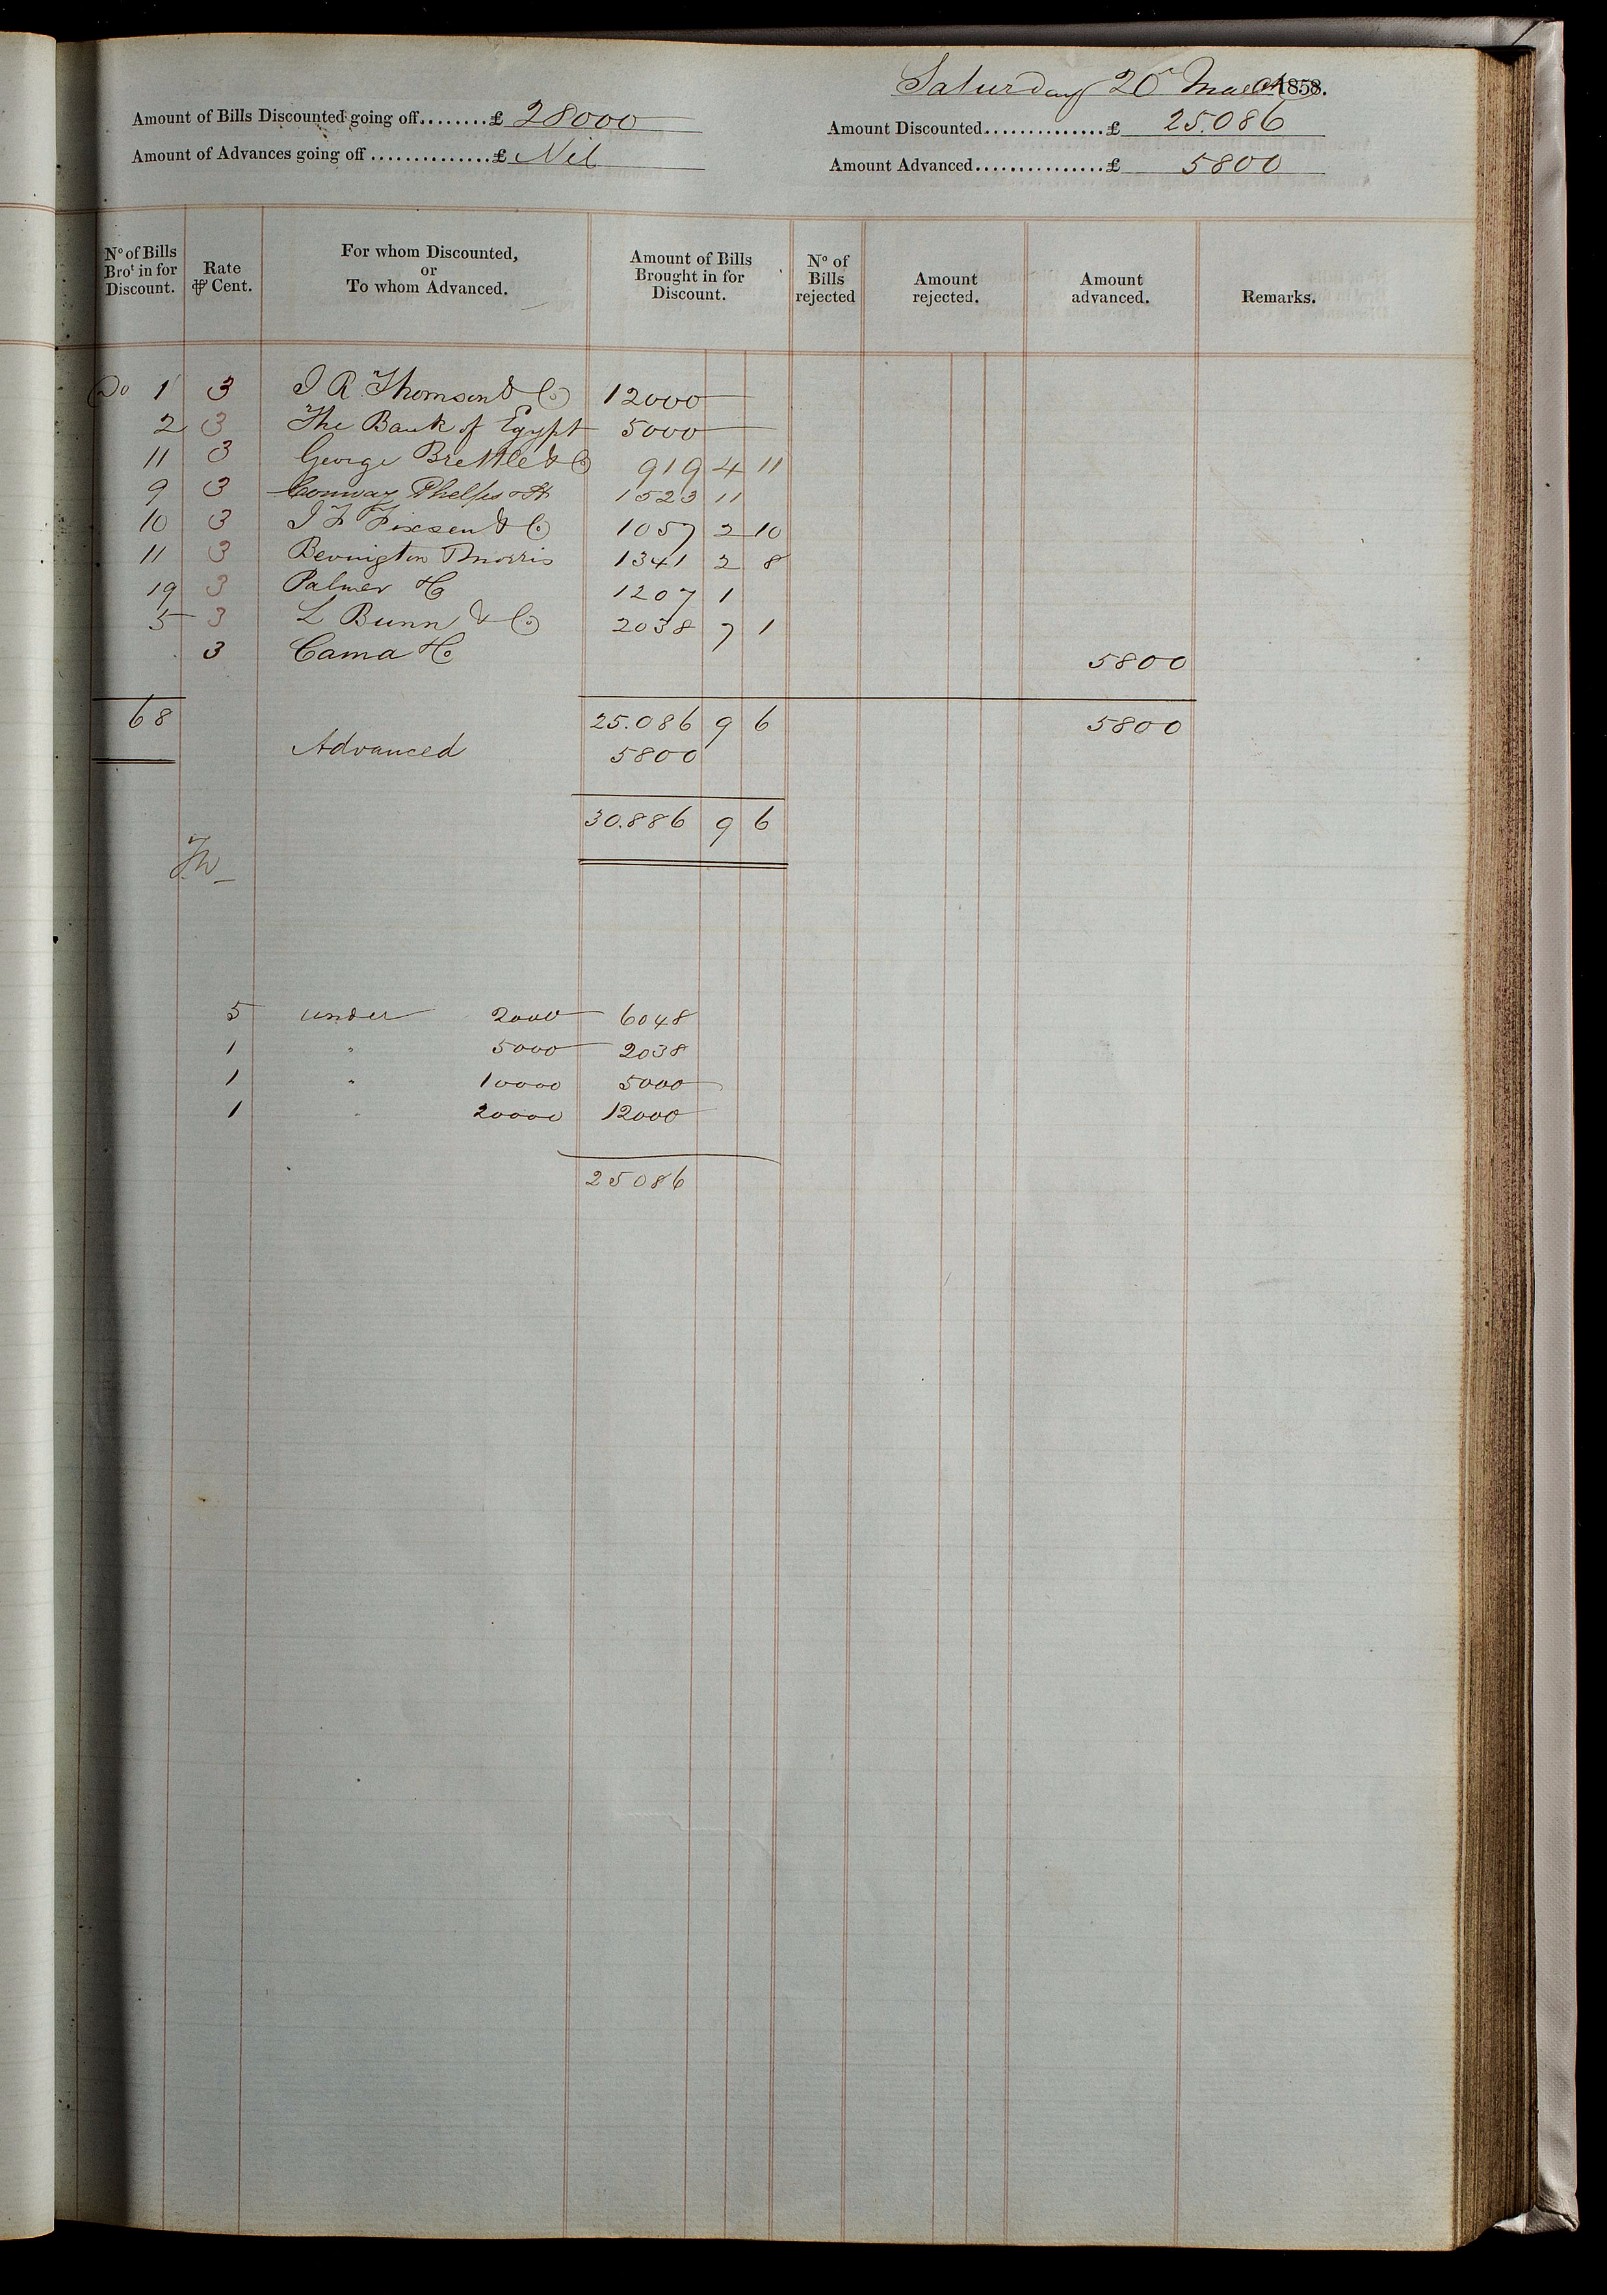 Saturday 20 March 1858.
Amount of Bills Discounted going off........£ 28000
Amount Discounted..............£ 25.086
Amount of Advances going off..............£ Nil
Amount Advanced...............£ 5800
No of Bills Brot in for Discount.
Rate ⅌ Cent.
For whom Discounted, or To whom Advanced.
Amount of Bills Brought in for Discount.
No of Bills rejected
Amount rejected.
Amount advanced.
Remarks.
Do 1 3 J R Thomson & Co 12000
2 3 The Bank of Egypt 5000
11 3 George Brettle & Co 919 4 11
9 3 Conway Phelps 1523 11
10 3 J F Fixsen & Co 1057 2 10
11 3 Bevington & Morris 1341 2 8
19 3 Palmer & Co 1207 1
5 3 L Bunn & Co 2038 7 1
3 Cama & Co 5800
68 25.086 9 6 5800
Advanced 5800
30.886 9 6
5 under 2000 6048
1 " 5000 2038
1 " 10000 5000
1 " 20000 12000
25086